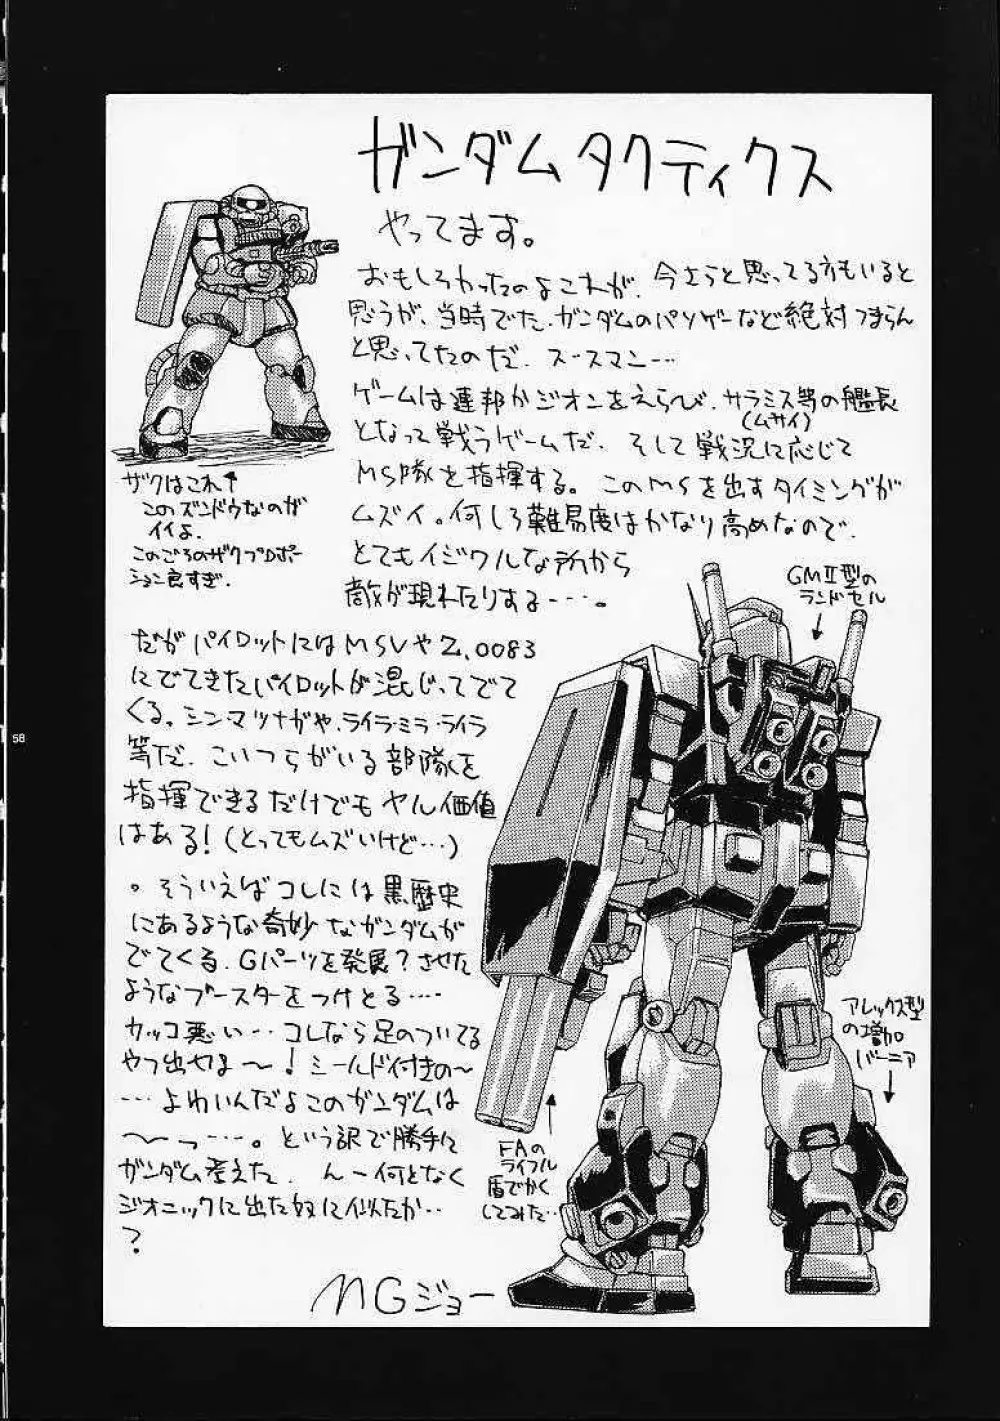 ガンダムタクティクス
やってます。
おもしろかったのよこれが、今さらと思ってる方もいると
思うが、当時でた、ガンダムのパソゲーなど絶対つまらん
と思ってたのだ、スースマニー…
ゲームは連邦かジオンをえらび、サラミス等の艦長
(ムサイ)
となって戦うゲームだ、そして戦況に応じて
MS隊を指揮する。このMSを出すタイミングが
ムズイ。何しろ難易度はかなり高めなので、
とてもイジワルな所から
敵が現れたりする……。
ザクはこれ↑
このズンドウなのが
イイよ、
このごろのザクプロポー
ション良すぎ、
だがパイロットにはMSVやZ、0083
にでてきたパイロットが混じってでて
くる。シン・マツナガや、ライラ・ミラ・ライラ
等だ、こいつらがいる部隊を
指揮できるだけでもヤル価値
はある!(とってもムズいけど…)
。そういえばコレには黒歴史
にあるような奇妙なガンダムが
でてくる、Gパーツを発展?させた
ようなブースターをつけとる…
カッコ悪い…コレなら足のついてる
やつ出せよ〜!シールド付きの〜
…よわいんだよこのガンダムは
〜っ…。という訳で勝手に
ガンダム考えた、んー何となく
ジオニックに出た奴に似たか…
?
GMⅡ型の
ランドセル
アレックス型
の増加
バーニア
FAの
ライフル
盾でかく
してみた…
NGジョー
58